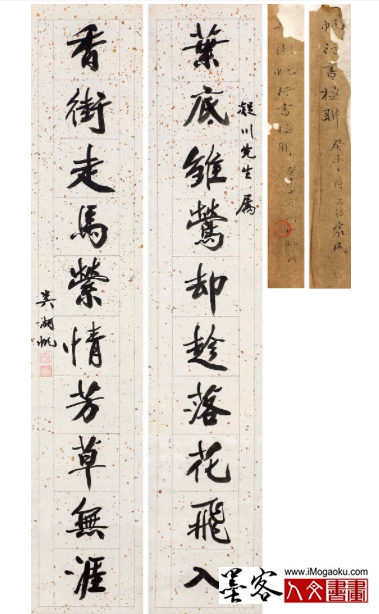 葉底雛鶯却趁落花飛入
川先生屬
香街走馬縈情芳草無涯
吳湖帆
帆行書楹聯
帆行書楹聯
墨客
www.iMogaoku.com